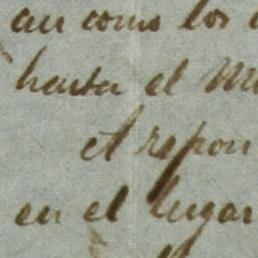 au como los
hasta el M
el repon
en el lugar